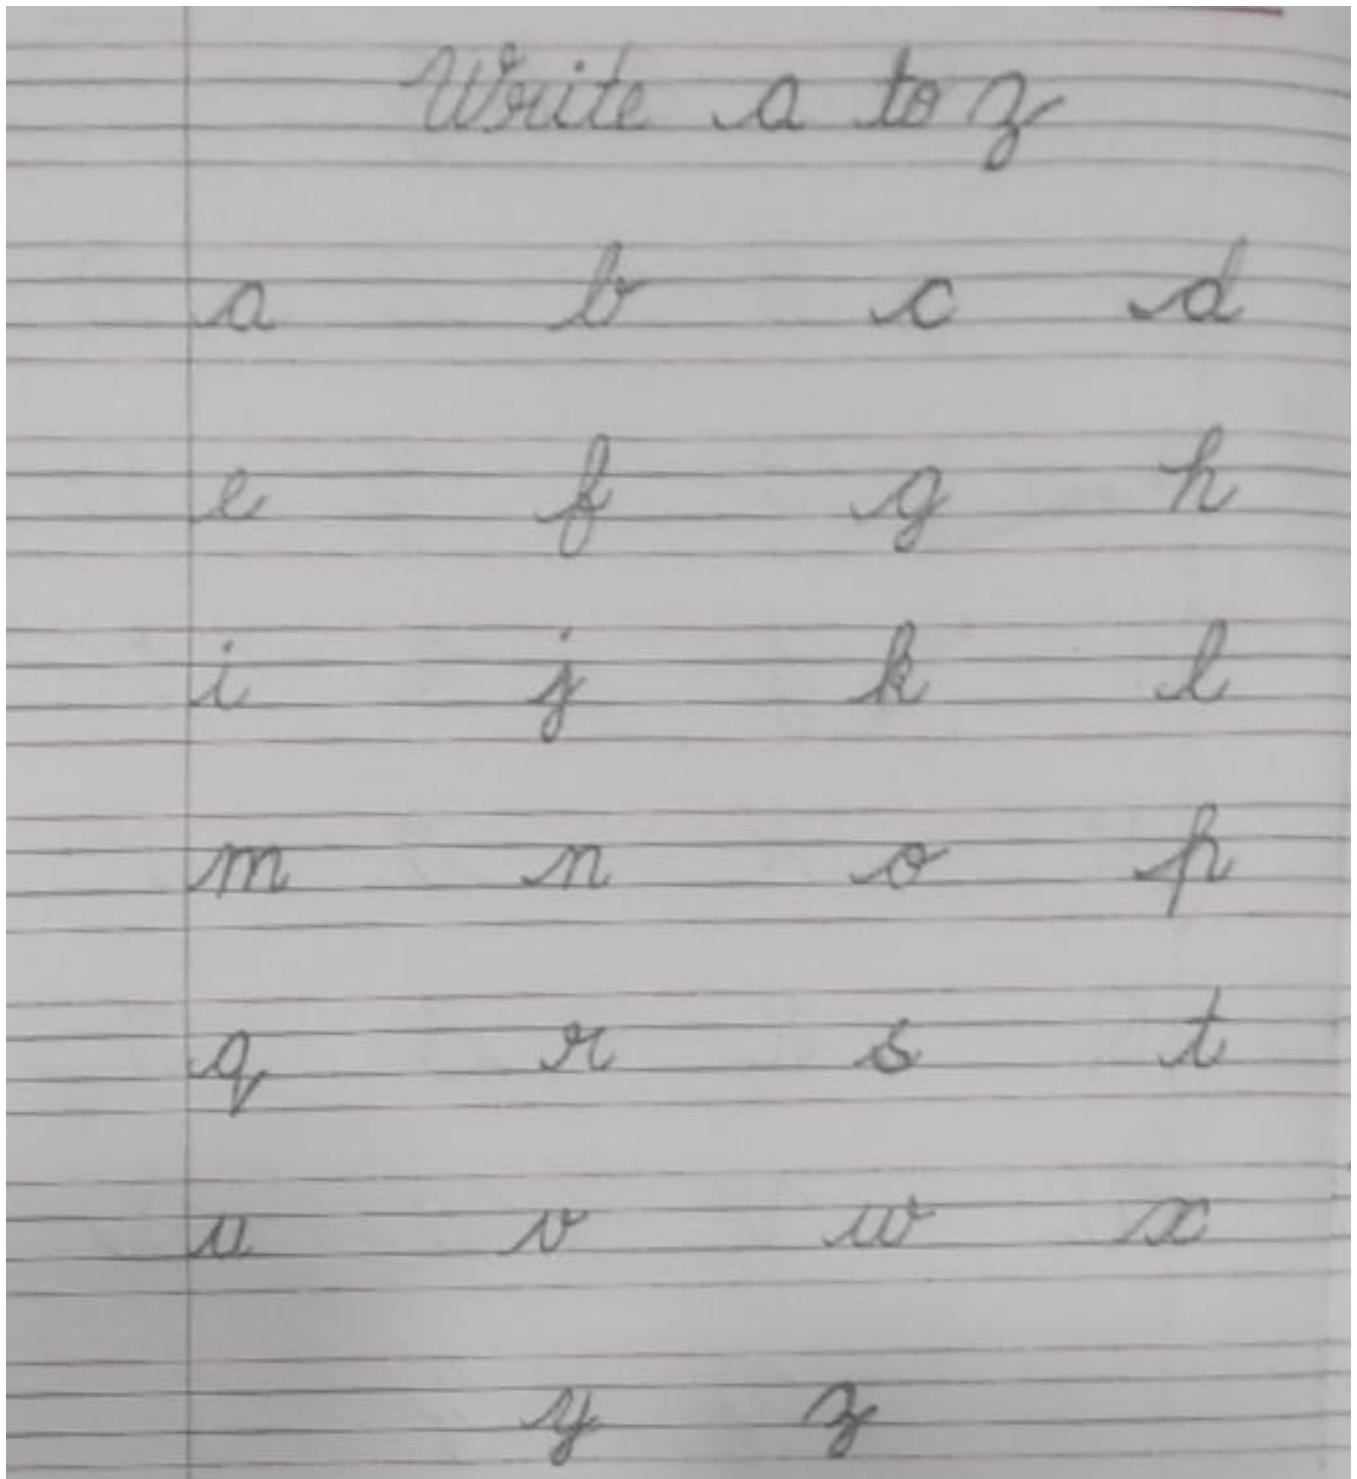 Write a to z
a b c d
e f g h
i j k l
m n o p
q r s t
u v w x
y z